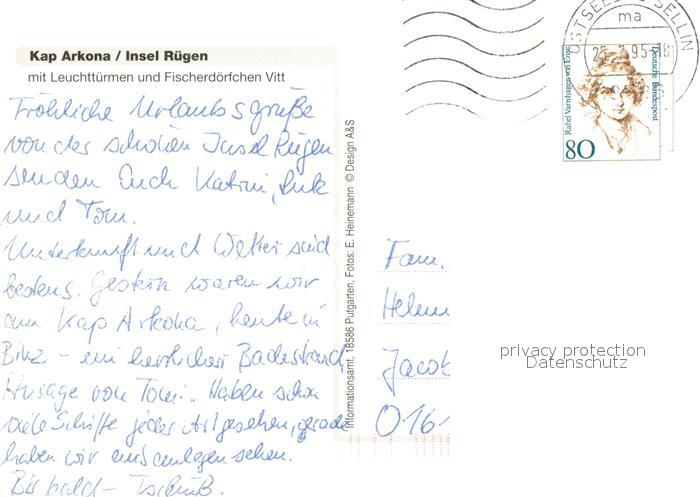 Kap Arkona / Insel Rügen
mit Leuchttürmen und Fischerdörfchen Vitt
Fröhliche Urlaubsgrüße
von der schönen Insel Rügen
senden Euch Katrin,
und Tom.
Unterkunft und Wetter sind
bestens. Gestern waren wir
am Kap Arkona, heute in
Binz - ein herrlicher Badestrand,
Aussage von Tom. Haben schon
viele Schiffe jeder Art gesehen, gerade
haben wir eins anlegen sehen.
Bis bald - Tschüß.
Informationsamt, 18586 Putgarten, Fotos: E. Heinemann © Design A&S
OSTSEEBAD SELLIN
ma
95-18
Rahel Varnhagen von Ense
Deutsche Bundespost
80
Fam.
Helm
Jacob
0161
privacy protection
Datenschutz